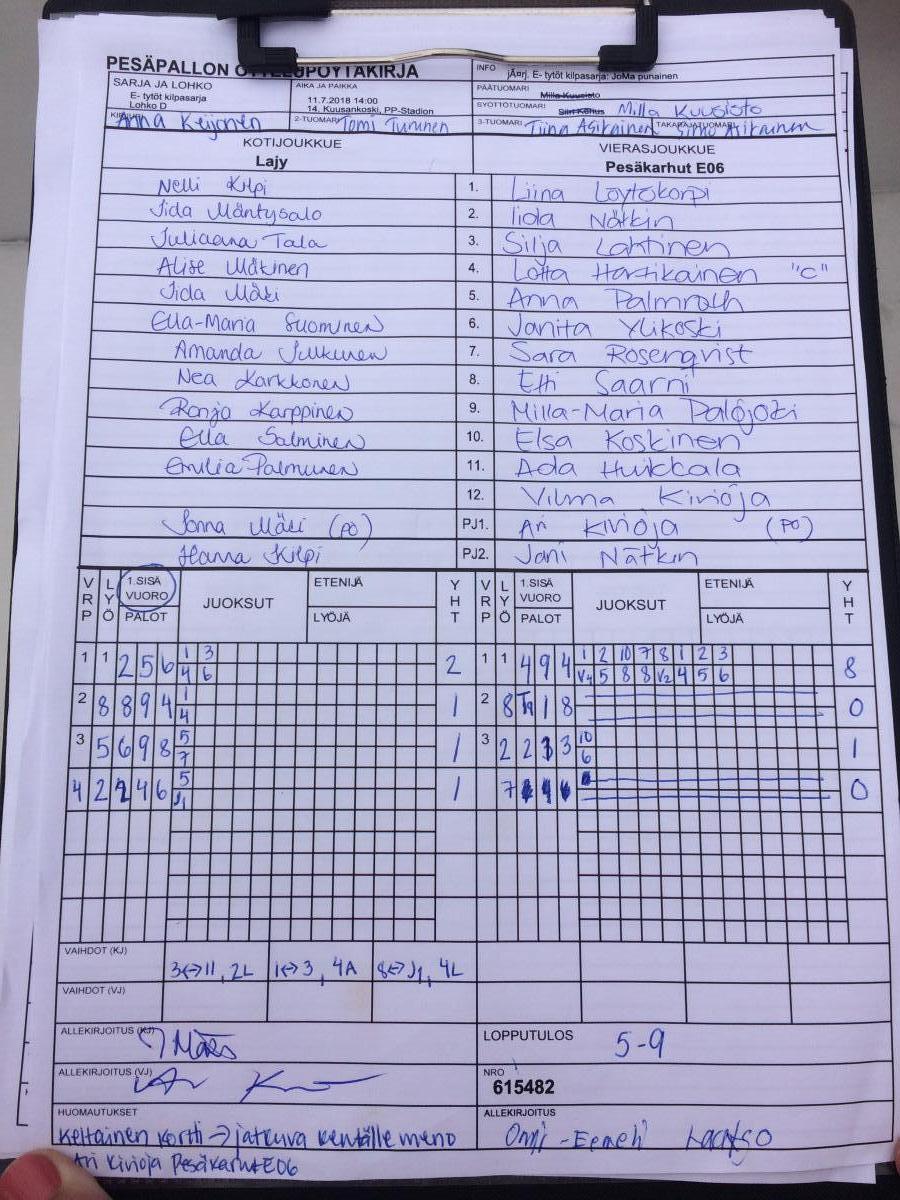 PESÄPALLON OTTELUPÖYTÄKIRJA
INFO jÄrj. E- tytöt kilpasarja: JoMa punainen
SARJA JA LOHKO
E- tytöt kilpasarja
Lohko D
AIKA JA PAIKKA
11.7.2018 14:00
14. Kuusankoski, PP-Stadion
PÄÄTUOMARI Milla Kuusisto
SYÖTTÖTUOMARI Milla Kuusisto
KIRJURI Anna Keijonen
2-TUOMARI Tomi Turunen
3-TUOMARI Tiina Asikainen
TAKARAJATUOMARI Asikainen
KOTIJOUKKUE
Lajy
VIERASJOUKKUE
Pesäkarhut E06
Nelli Kilpi 1. Liina Löytökorpi
Iida Mäntysalo 2. Iida Nätkin
Juliaana Tala 3. Silja Lahtinen
Alise Mäkinen 4. Lotta Hartikainen "C"
Iida Mäki 5. Anna Palmroth
Ella-Maria Suominen 6. Janita Ylikoski
Amanda Julkunen 7. Sara Rosenqvist
Nea Karkkonen 8. Etti Saarni
Ronja Karppinen 9. Milla-Maria Palojoki
Ella Salminen 10. Elsa Koskinen
Emilia Palmunen 11. Ada Huikkala
12. Vilma Kivioja
Jonna Mäki (PO) PJ1. Ari Kivioja (PO)
Hanna Kilpi PJ2. Jani Nätkin
VRP LYÖ 1.SISÄ VUORO PALOT JUOKSUT ETENIJÄ LYÖJÄ YHT VRP LYÖ 1.SISÄ VUORO PALOT JUOKSUT ETENIJÄ LYÖJÄ YHT
1 1 2 5 6 1 3 2 1 1 4 9 4 1 2 10 7 8 1 2 3 8
4 6 V4 5 8 8 V2 4 5 6
2 8 8 9 4 1 1 2 8 T9 1 8 0
4
3 5 6 9 8 5 1 3 2 2 3 3 10 1
7 6
4 2 2 4 6 5 1 7 0
J1
VAIHDOT (KJ) 3<->11, 2L 1<->3, 4A 8<->J1, 4L
VAIHDOT (VJ)
ALLEKIRJOITUS (KJ) J Mäki
LOPPUTULOS 5-9
ALLEKIRJOITUS (VJ)
NRO
615482
HUOMAUTUKSET
ALLEKIRJOITUS
Keltainen kortti -> jatkuva kentälle meno
Onni-Eemeli Laatso
Ari Kivioja PesäkarhutE06